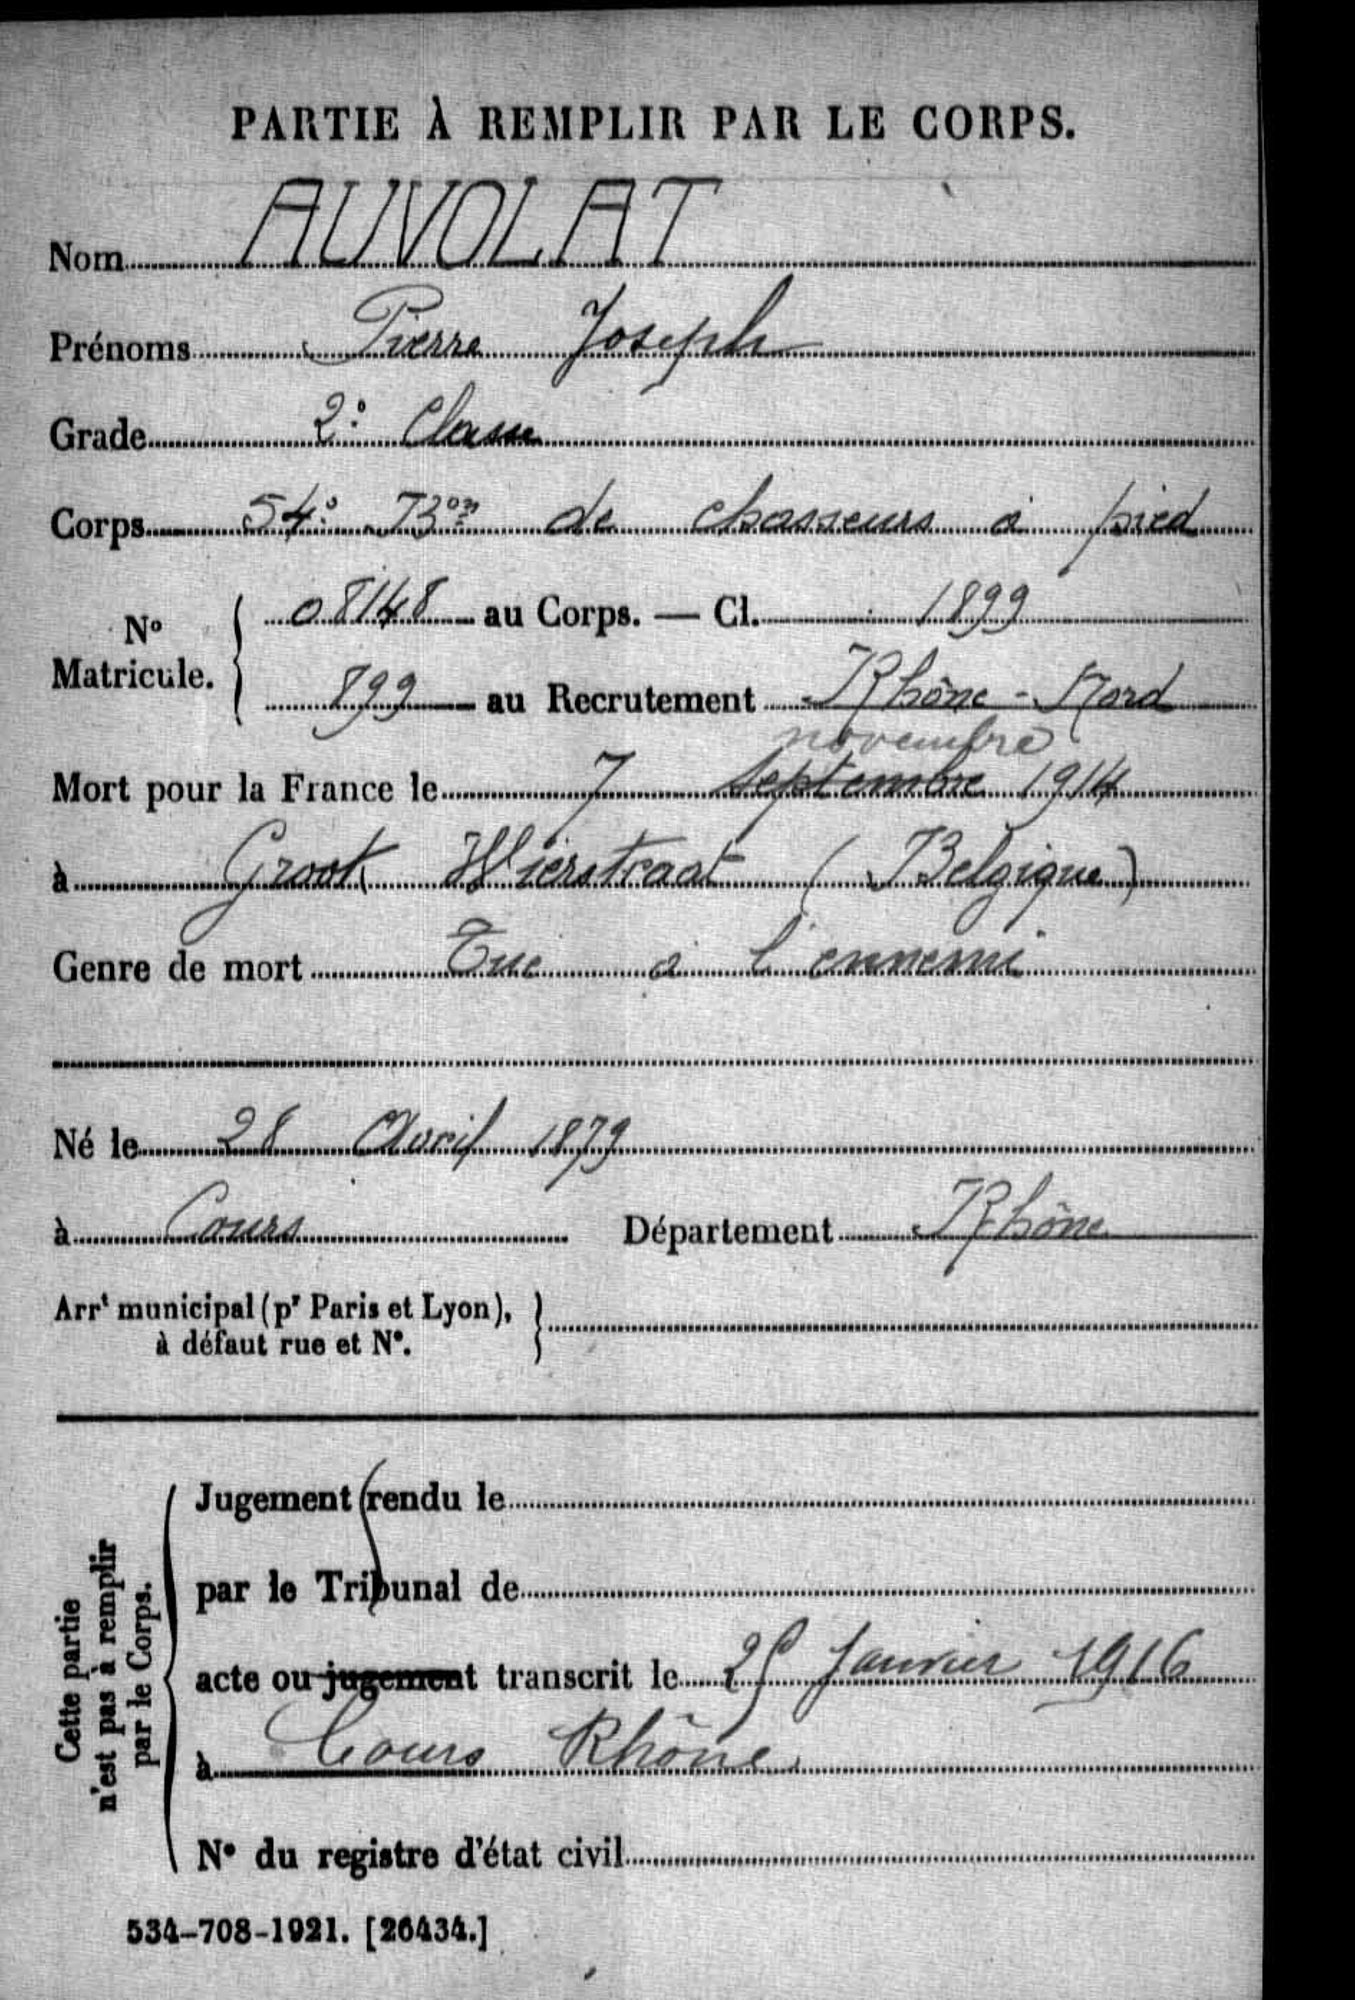 PARTIE À REMPLIR PAR LE CORPS.
Nom AUVOLAT
Prénoms Pierre Joseph
Grade 2e Classe
Corps 54e Bon de chasseurs à pied
No Matricule. 08148 au Corps. — Cl. 1899
899 au Recrutement Rhône-Nord
novembre
Mort pour la France le 7 septembre 1914
à Groot Wierstraat (Belgique)
Genre de mort Tué à l'ennemi
Né le 28 Avril 1879
à Cours Département Rhône
Arrt municipal (pr Paris et Lyon),
à défaut rue et No.
Cette partie n'est pas à remplir par le Corps.
Jugement rendu le
par le Tribunal de
acte ou jugement transcrit le Janvier 1916
à Cours Rhône
No du registre d'état civil
534-708-1921. [26434.]